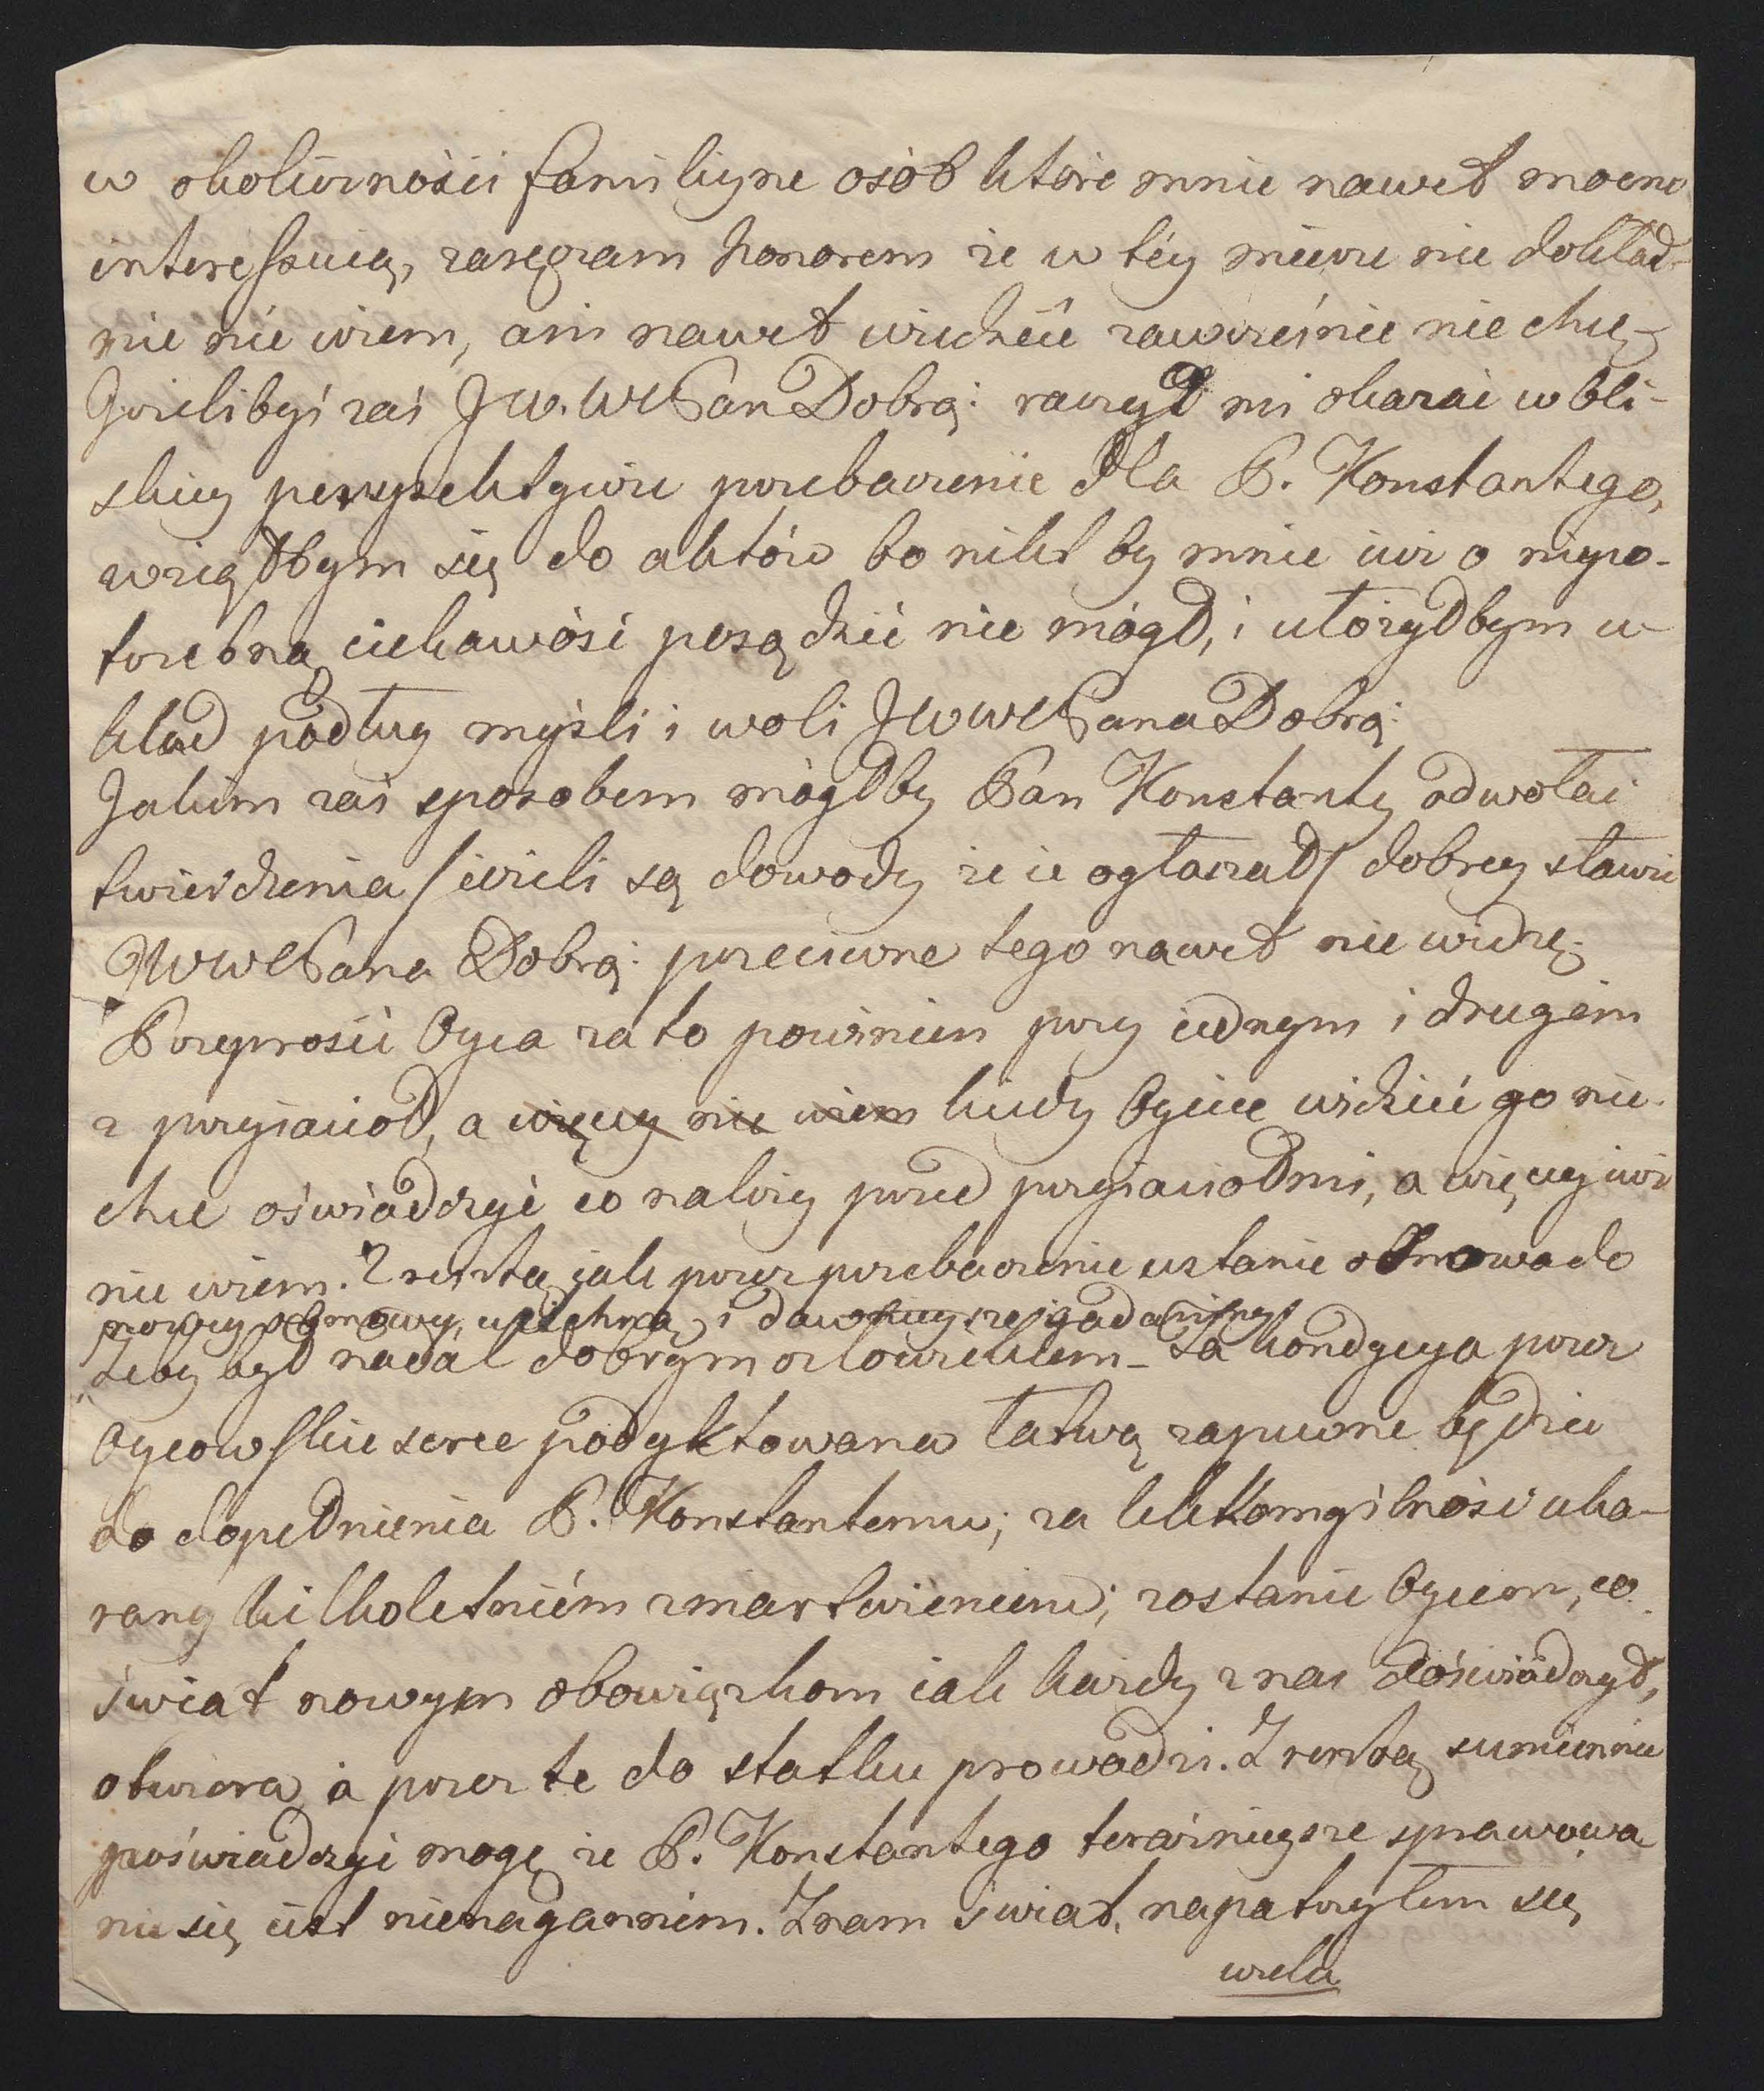 w okoliczności familiyne osób które mnie nawet mocno
interessuią, zaręczam honorem że w téy mierze nic dokład-
nie nie wiem, ani nawet wiedzieć zawcześnie nie chcę.
Jeżelibyś zaś JW. WPan Dobrą: raczył mi okazać w bli-
skiey perspektywie przebaczenie dla P. Konstantego,
wziąłbym się do aktów bo nikt by mnie iuż o niepo-
trzebną ciekawość posądzić nie mógł, i ułożyłbym u-
kład podług myśli i woli JWWPana Dobrą:
Jakim zaś sposobem mógłby Pan Konstanty odwołać
twierdzenia /ieżeli są dowody że ie ogłaszał/ dobrey sławie
JWWPana Dobrą: przeciwne tego nawet nie widzę;
Przeprosić Oyca za to powinien przy iednym i drugim
z przyiaciół, a więcey nie wiem kiedy Oyciec widzieć go nie
chce oświadczyć co należy przed przyiaciołmi, a więcey iuż
nie wiem. Zresztą iak przez przebaczenie ustanie obmowa do
nowey obmowy, ucichną i dawnieysze gadaniny
Żeby był nadal dobrym człowiekiem – Ta kondycya przez
Oycowskie serce podyktowana łatwą zapewne będzie
do dopełnienia P. Konstantemu; za lekkomyślność uka-
rany kilkoletniém zmartwieniem; zostanie Oycem, co
świat nowym obowiązkom iak każdy z nas doświadczył,
otwiera a przez te do statku prowadzi. Zresztą sumiennie
poświadczyć mogę że P. Konstantego teraźnieysze sprawowa
nie się iest nienagannem. Znam świat, napatrzyłem się
wiela